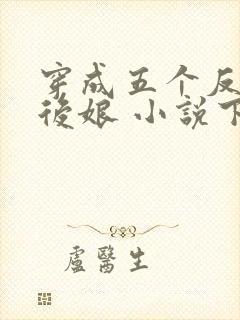 穿成五个反
後娘 小説下
盧醫生